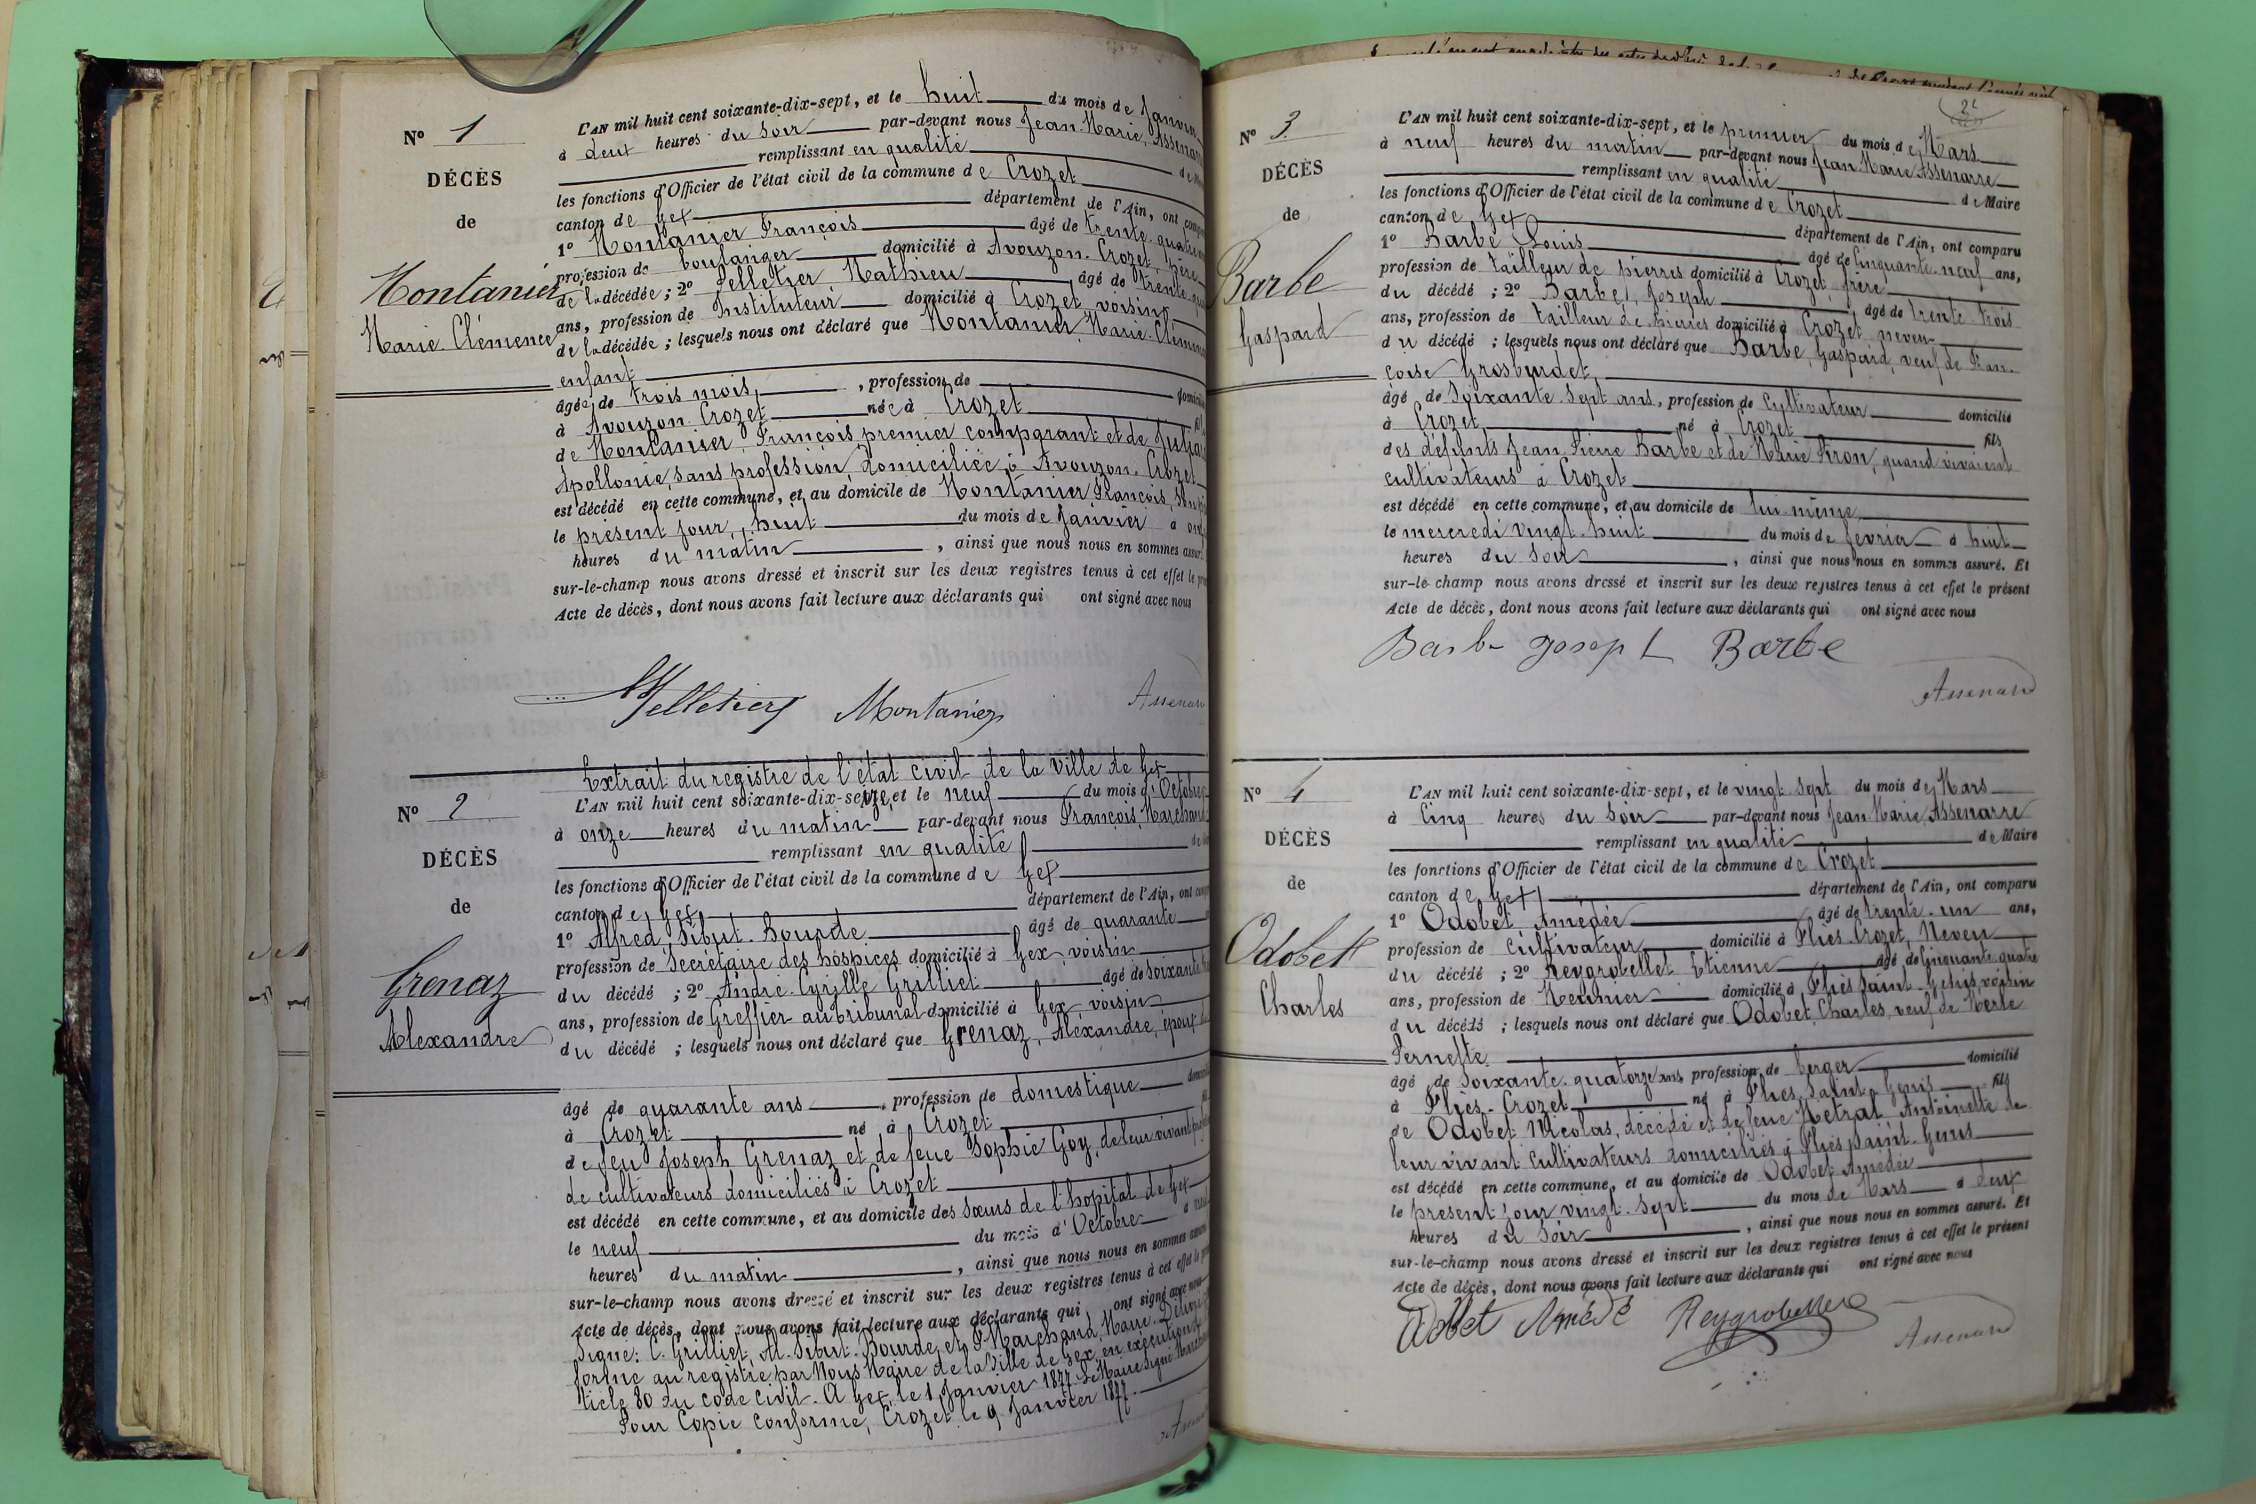 N° 1
DÉCÈS
de
Montanier
Marie Clémence
L'AN mil huit cent soixante-dix-sept, et le huit du mois de Janvier
à deux heures du Soir par-devant nous Jean Marie Assenarre
remplissant en qualité de
les fonctions d'Officier de l'état civil de la commune de Crozet
canton de Gex département de l'Ain, ont
1° Montanier François âgé de trente quatre
profession de boulanger domicilié à Avouzon-Crozet, Père
de la décédée ; 2° Pelletier Mathieu âgé de trente
ans, profession de Instituteur domicilié à Crozet, voisin
de la décédée ; lesquels nous ont déclaré que Montanier Marie-Clémence
enfant
âgée de trois mois, profession de
à Avouzon Crozet née à Crozet
de Montanier, François premier comparant et de
Apollonie, sans profession, domiciliée à Avouzon-Crozet
est décédé en cette commune, et au domicile de Montanier François,
le présent jour, huit du mois de Janvier à
heures du matin, ainsi que nous nous en sommes
sur-le-champ nous avons dressé et inscrit sur les deux registres tenus à cet effet le
Acte de décès, dont nous avons fait lecture aux déclarants qui ont signé avec nous
Pelletier Montanier
Extrait du registre de l'état civil de la Ville de Gex
N° 2
DÉCÈS
de
Grenaz
Alexandre
L'AN mil huit cent soixante-dix-seize, et le neuf du mois d'Octobre
à onze heures du matin par-devant nous François, Marchand
remplissant en qualité
les fonctions d'Officier de l'état civil de la commune de Gex
canton de Gex département de l'Ain, ont
1° Alfred, Sibut-Bourde âgé de quarante
profession de Secrétaire des hospices domicilié à Gex, voisin
du décédé ; 2° André-Cyrille Grilliet âgé de soixante
ans, profession de Greffier au tribunal domicilié à Gex, voisin
du décédé ; lesquels nous ont déclaré que Grenaz, Alexandre,
âgé de quarante ans, profession de domestique
à Crozet né à Crozet
de feu Joseph Grenaz et de feue Sophie Goy, de leur vivant
de cultivateurs domiciliés à Crozet
est décédé en cette commune, et au domicile des Sœurs de l'hopital de Gex
le neuf du mois d'Octobre à
heures du matin, ainsi que nous nous en sommes
sur-le-champ nous avons dressé et inscrit sur les deux registres tenus à cet effet le
Acte de décès, dont nous avons fait lecture aux déclarants qui ont signé avec nous
Signé: C. Grilliet, Al. Sibut-Bourde, et F. Marchand, Maire.
forme au registre par Nous Maire de la Ville de Gex en exécution
ticle 80 du code civil. A Gex, le 1 Janvier 1877. Le Maire Signé
Pour Copie Conforme, Crozet le 9 Janvier 1877.
2e
N° 3
DÉCÈS
de
Barbe
Gaspard
L'AN mil huit cent soixante-dix-sept, et le premier du mois de Mars
à neuf heures du matin par-devant nous Jean Marie Assenarre
remplissant en qualité de Maire
les fonctions d'Officier de l'état civil de la commune de Crozet
canton de Gex département de l'Ain, ont comparu
1° Barbe Louis âgé de Cinquante-neuf ans,
profession de tailleur de pierres domicilié à Crozet, frère
du décédé ; 2° Barbe, Joseph âgé de trente trois
ans, profession de tailleur de pierres domicilié à Crozet, neveu
du décédé ; lesquels nous ont déclaré que Barbe, Gaspard, veuf de Fran-
çoise Grosburdet,
âgé de Soixante Sept ans, profession de Cultivateur domicilié
à Crozet né à Crozet fils
des défunts Jean Pierre Barbe et de Marie Piron, quand vivaient
cultivateurs à Crozet
est décédé en cette commune, et au domicile de lui même
le mercredi vingt huit du mois de février à huit
heures du Soir, ainsi que nous nous en sommes assuré. Et
sur-le-champ nous avons dressé et inscrit sur les deux registres tenus à cet effet le présent
Acte de décès, dont nous avons fait lecture aux déclarants qui ont signé avec nous
Barbe Joseph Barbe
N° 4
DÉCÈS
de
Odobet
Charles
L'AN mil huit cent soixante-dix-sept, et le vingt sept du mois de Mars
à Cinq heures du Soir par-devant nous Jean Marie Assenarre
remplissant en qualité de Maire
les fonctions d'Officier de l'état civil de la commune de Crozet
canton de Gex département de l'Ain, ont comparu
1° Odobet Amédée âgé de trente-un ans,
profession de Cultivateur domicilié à Fliès-Crozet, Neveu
du décédé ; 2° Reygrobellet Etienne âgé de Cinquante quatre
ans, profession de Meunier domicilié à Fliès Saint-Genis, voisin
du décédé ; lesquels nous ont déclaré que Odobet, Charles, veuf de Merle
Pernette
âgé de Soixante-quatorze ans, profession de berger domicilié
à Fliès-Crozet né à Fliès Saint-Genis fils
de Odobet Nicolas, décédé et de feue Metral Antoinette de
leur vivant Cultivateurs domiciliés à Fliès Saint-Genis
est décédé en cette commune, et au domicile de Odobet Amédée
le présent jour vingt-sept du mois de Mars à deux
heures du Soir, ainsi que nous nous en sommes assuré. Et
sur-le-champ nous avons dressé et inscrit sur les deux registres tenus à cet effet le présent
Acte de décès, dont nous avons fait lecture aux déclarants qui ont signé avec nous
Odobet Amédé Reygrobellet